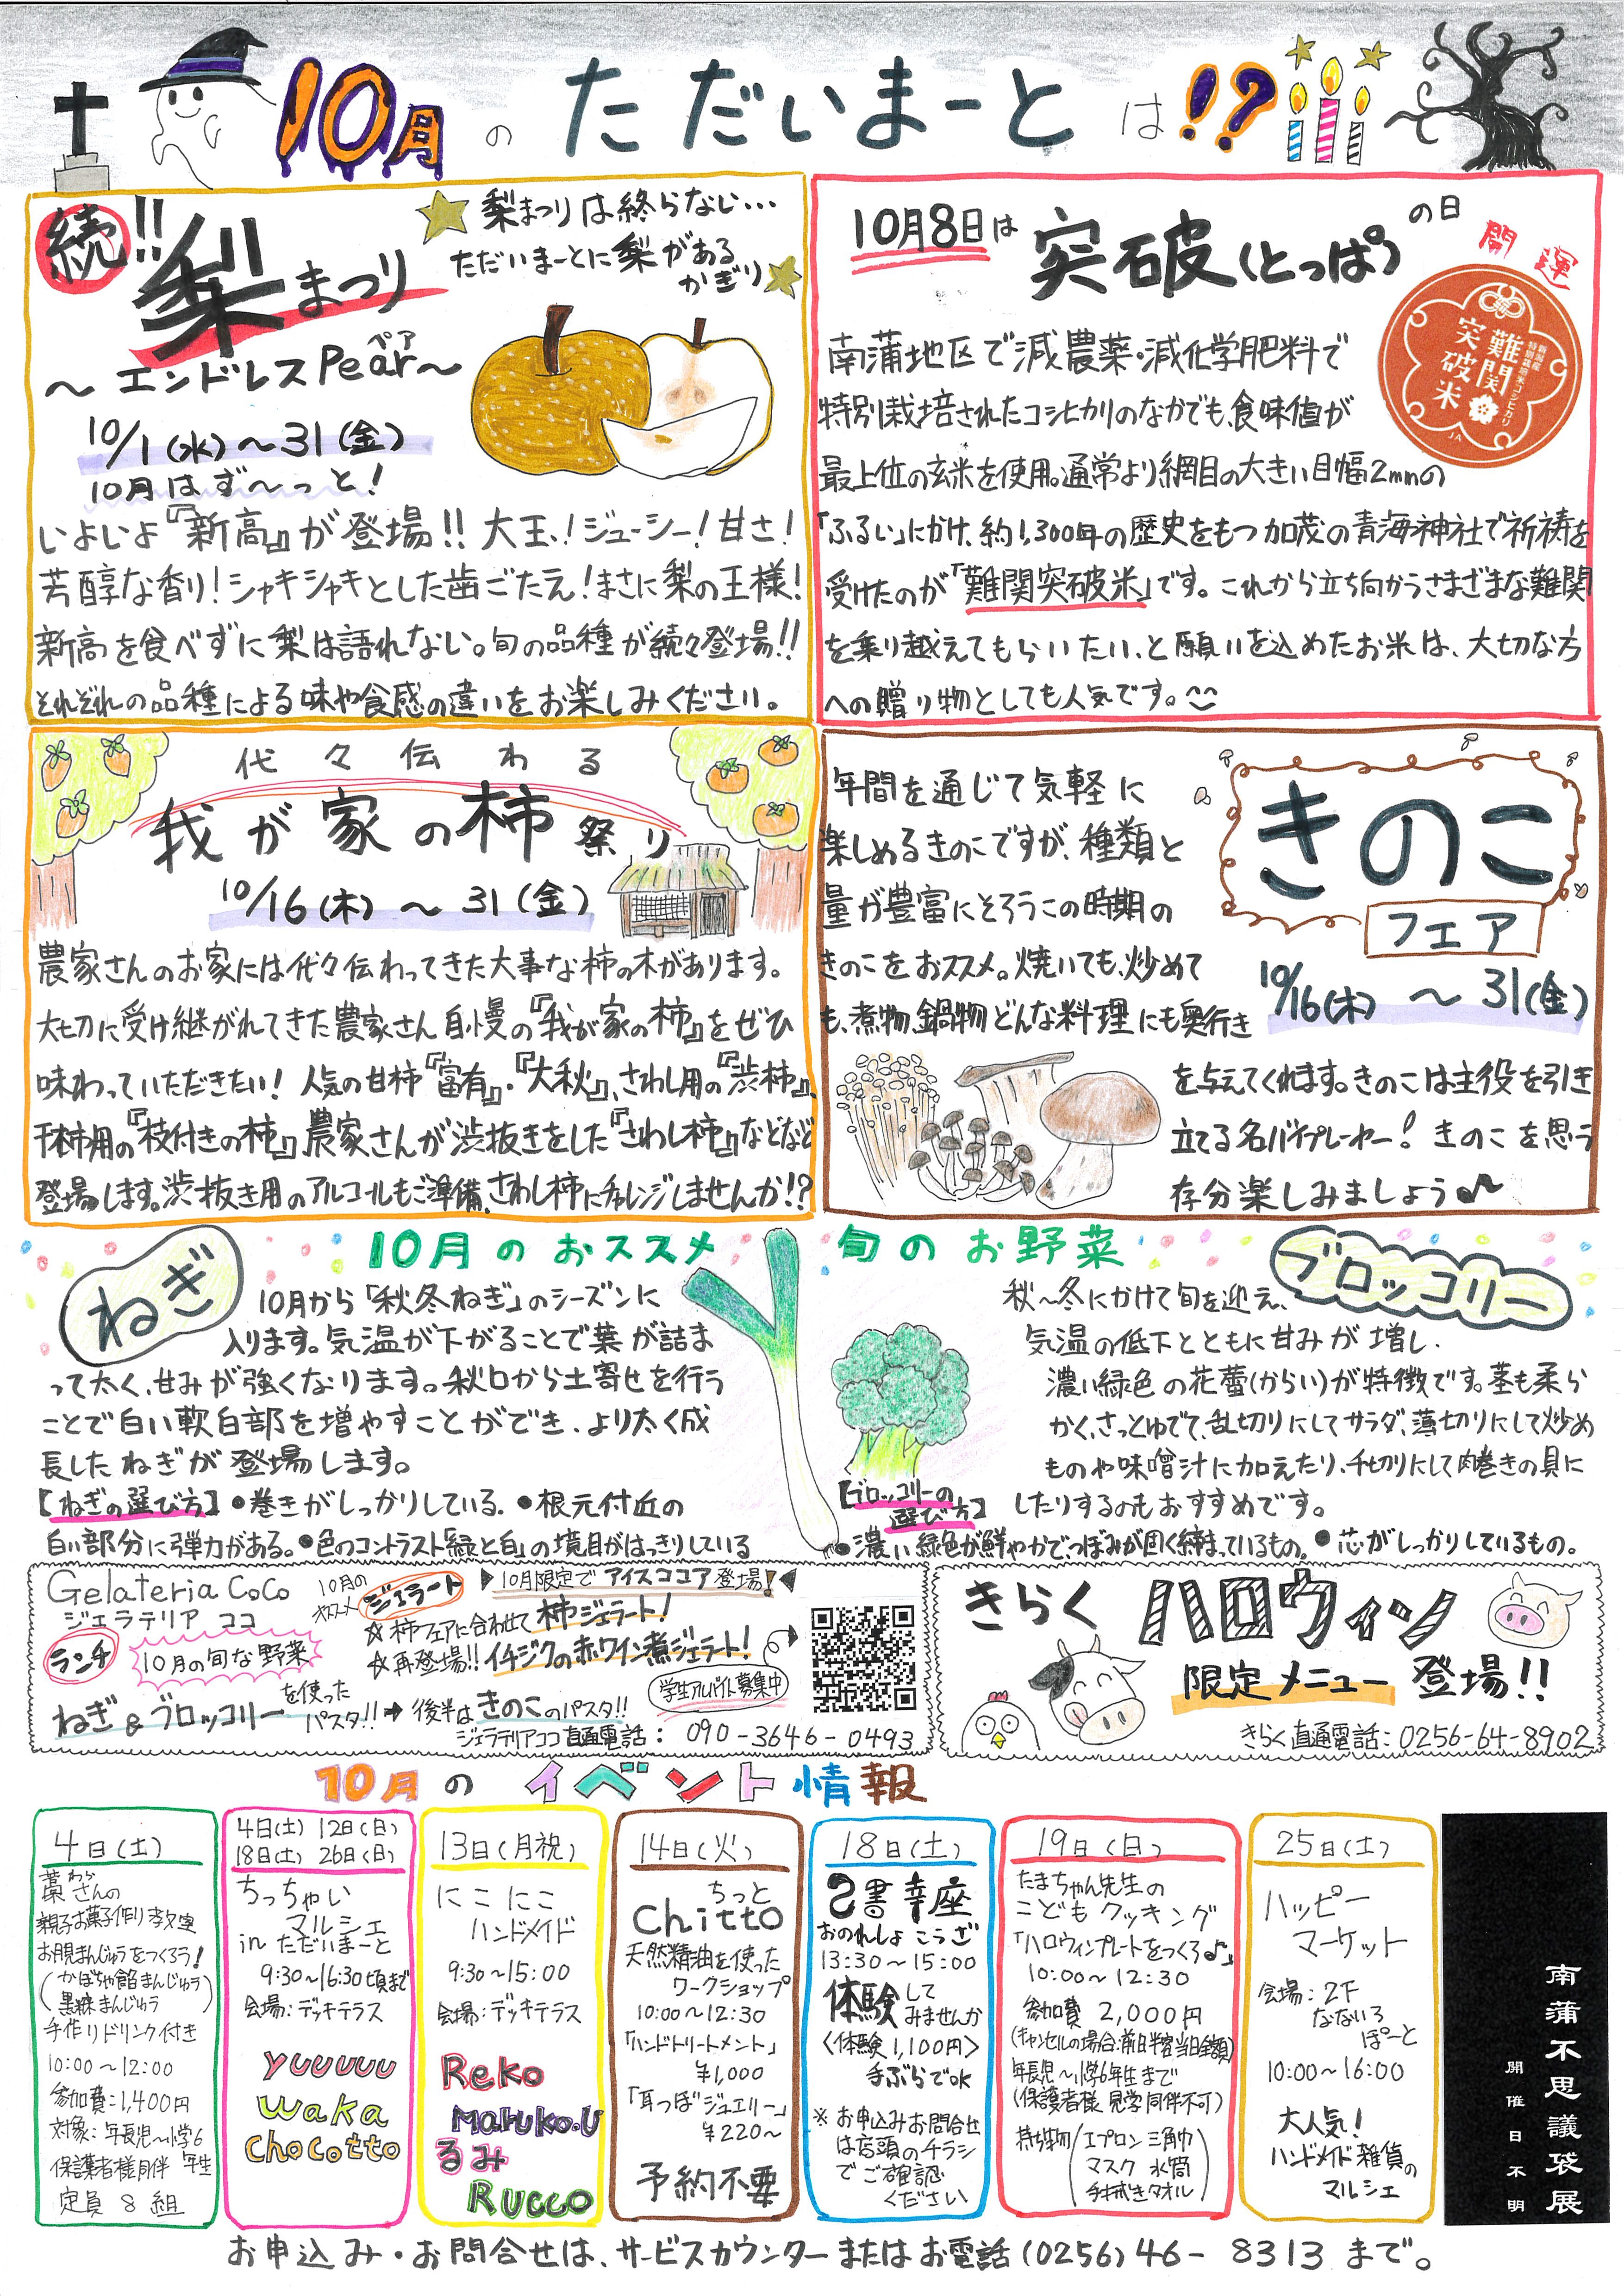 10月のただいまーとは!?
続!!梨まつり
~エンドレスPear~
ペア
梨まつりは終らない…
ただいまーとに梨がある
かぎり
10/1(水)~31(金)
10月はず~っと!
いよいよ『新高』が登場!!大玉!ジューシー!甘さ!
芳醇な香り!シャキシャキとした歯ごたえ!まさに梨の王様!
新高を食べずに梨は語れない。旬の品種が続々登場!!
それぞれの品種による味や食感の違いをお楽しみください。
10月8日は突破(とっぱ)の日
開運
難関突破米
新潟産
特別栽培米コシヒカリ
JA
南蒲地区で減農薬・減化学肥料で
特別栽培されたコシヒカリのなかでも、食味値が
最上位の玄米を使用。通常より網目の大きい目幅2mmの
「ふるい」にかけ、約1,300年の歴史をもつ加茂の青海神社で祈祷を
受けたのが「難関突破米」です。これから立ち向かうさまざまな難関
を乗り越えてもらいたい、と願いを込めたお米は、大切な方
への贈り物としても人気です。
代々伝わる
我が家の柿祭り
10/16(木)~31(金)
農家さんのお家には代々伝わってきた大事な柿の木があります。
大切に受け継がれてきた農家さん自慢の『我が家の柿』をぜひ
味わっていただきたい!人気の甘柿『富有』・『大秋』、さわし用の『渋柿』、
干柿用の『枝付きの柿』農家さんが渋抜きをした『さわし柿』などなど
登場します。渋抜き用のアルコールもご準備、さわし柿にチャレンジしませんか!?
きのこ
フェア
10/16(木)~31(金)
年間を通じて気軽に
楽しめるきのこですが、種類と
量が豊富にそろうこの時期の
きのこをおススメ。焼いても、炒めて
も、煮物、鍋物どんな料理にも奥行き
を与えてくれます。きのこは主役を引き
立てる名バイプレーヤー!きのこを思う
存分楽しみましょう♪
10月のおススメ 旬のお野菜
ねぎ
10月から「秋冬ねぎ」のシーズンに
入ります。気温が下がることで葉が詰ま
って太く、甘みが強くなります。秋口から土寄せを行う
ことで白い軟白部を増やすことができ、より太く成
長したねぎが登場します。
【ねぎの選び方】●巻きがしっかりしている。●根元付近の
白い部分に弾力がある。●色のコントラスト「緑と白」の境目がはっきりしている
ブロッコリー
秋~冬にかけて旬を迎え、
気温の低下とともに甘みが増し、
濃い緑色の花蕾(からい)が特徴です。茎も柔ら
かく、さっとゆでて、乱切りにしてサラダ、薄切りにして炒め
ものや味噌汁に加えたり、千切りにして肉巻きの具に
したりするのもおすすめです。
【ブロッコリーの
選び方】
●濃い緑色が鮮やかで、つぼみが固く締まっているもの。●芯がしっかりしているもの。
Gelateria CoCo
ジェラテリア ココ
ランチ
10月の旬な野菜
ねぎ&ブロッコリーを使った
パスタ!!➡後半はきのこのパスタ!!
10月の
オススメ
ジェラート
10月限定でアイスココア登場!
☆柿フェアに合わせて柿ジェラート!
☆再登場!!イチジクの赤ワイン煮ジェラート!
学生アルバイト募集中
ジェラテリアココ直通電話:090-3646-0493
きらく ハロウィン
限定メニュー登場!!
きらく直通電話:0256-64-8902
10月のイベント情報
4日(土)
わら
藁さんの
親子お菓子作り教室
お月見まんじゅうをつくろう!
(かぼちゃ餡まんじゅう
黒糖まんじゅう)
手作りドリンク付き
10:00~12:00
参加費:1,400円
対象:年長児~小学6年生
保護者様同伴
定員8組
4日(土) 12日(日)
18日(土) 26日(日)
ちっちゃい
マルシェ
in ただいまーと
9:30~16:30頃まで
会場:デッキテラス
yuuuuu
Waka
Chocotto
13日(月祝)
にこにこ
ハンドメイド
9:30~15:00
会場:デッキテラス
Reko
Maruko.U
るみ
Rucco
14日(火)
ちっと
Chitto
天然精油を使った
ワークショップ
10:00~12:30
「ハンドトリートメント」
¥1,000
「耳つぼジュエリー」
¥220~
予約不要
18日(土)
己書幸座
おのれしょ こうざ
13:30~15:00
体験して
みませんか
<体験1,100円>
手ぶらでOK
※お申込みお問合せ
は店頭のチラシ
でご確認
ください
19日(日)
たまちゃん先生の
こどもクッキング
「ハロウィンプレートをつくろ♪」
10:00~12:30
参加費 2,000円
(キャンセルの場合:前日半額当日全額)
年長児~小学6年生まで
(保護者様見学同伴不可)
持ち物(エプロン 三角巾
マスク 水筒
手拭きタオル)
25日(土)
ハッピー
マーケット
会場:2F
なないろ
ぽーと
10:00~16:00
大人気!
ハンドメイド雑貨の
マルシェ
南蒲不思議袋展
開催日不明
お申込み・お問合せは、サービスカウンターまたはお電話(0256)46-8313まで。